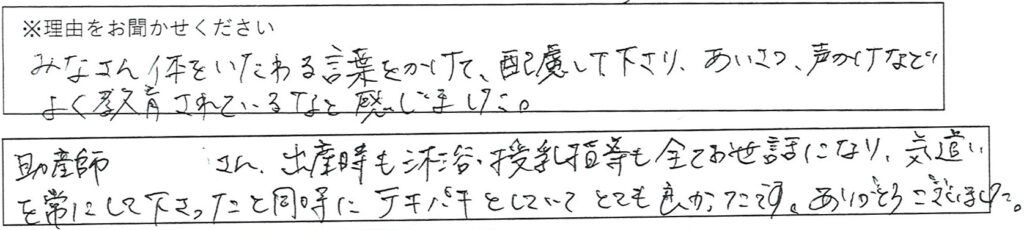 ※理由をお聞かせください
みなさん体をいたわる言葉をかけて、配慮して下さり、あいさつ、声かけなど
よく教育されているなと感じました。
助産師 さん、出産時も沐浴・授乳指導も全てお世話になり、気遣い
を常にして下さったと同時にテキパキとしていてとても良かったです。ありがとうございました。